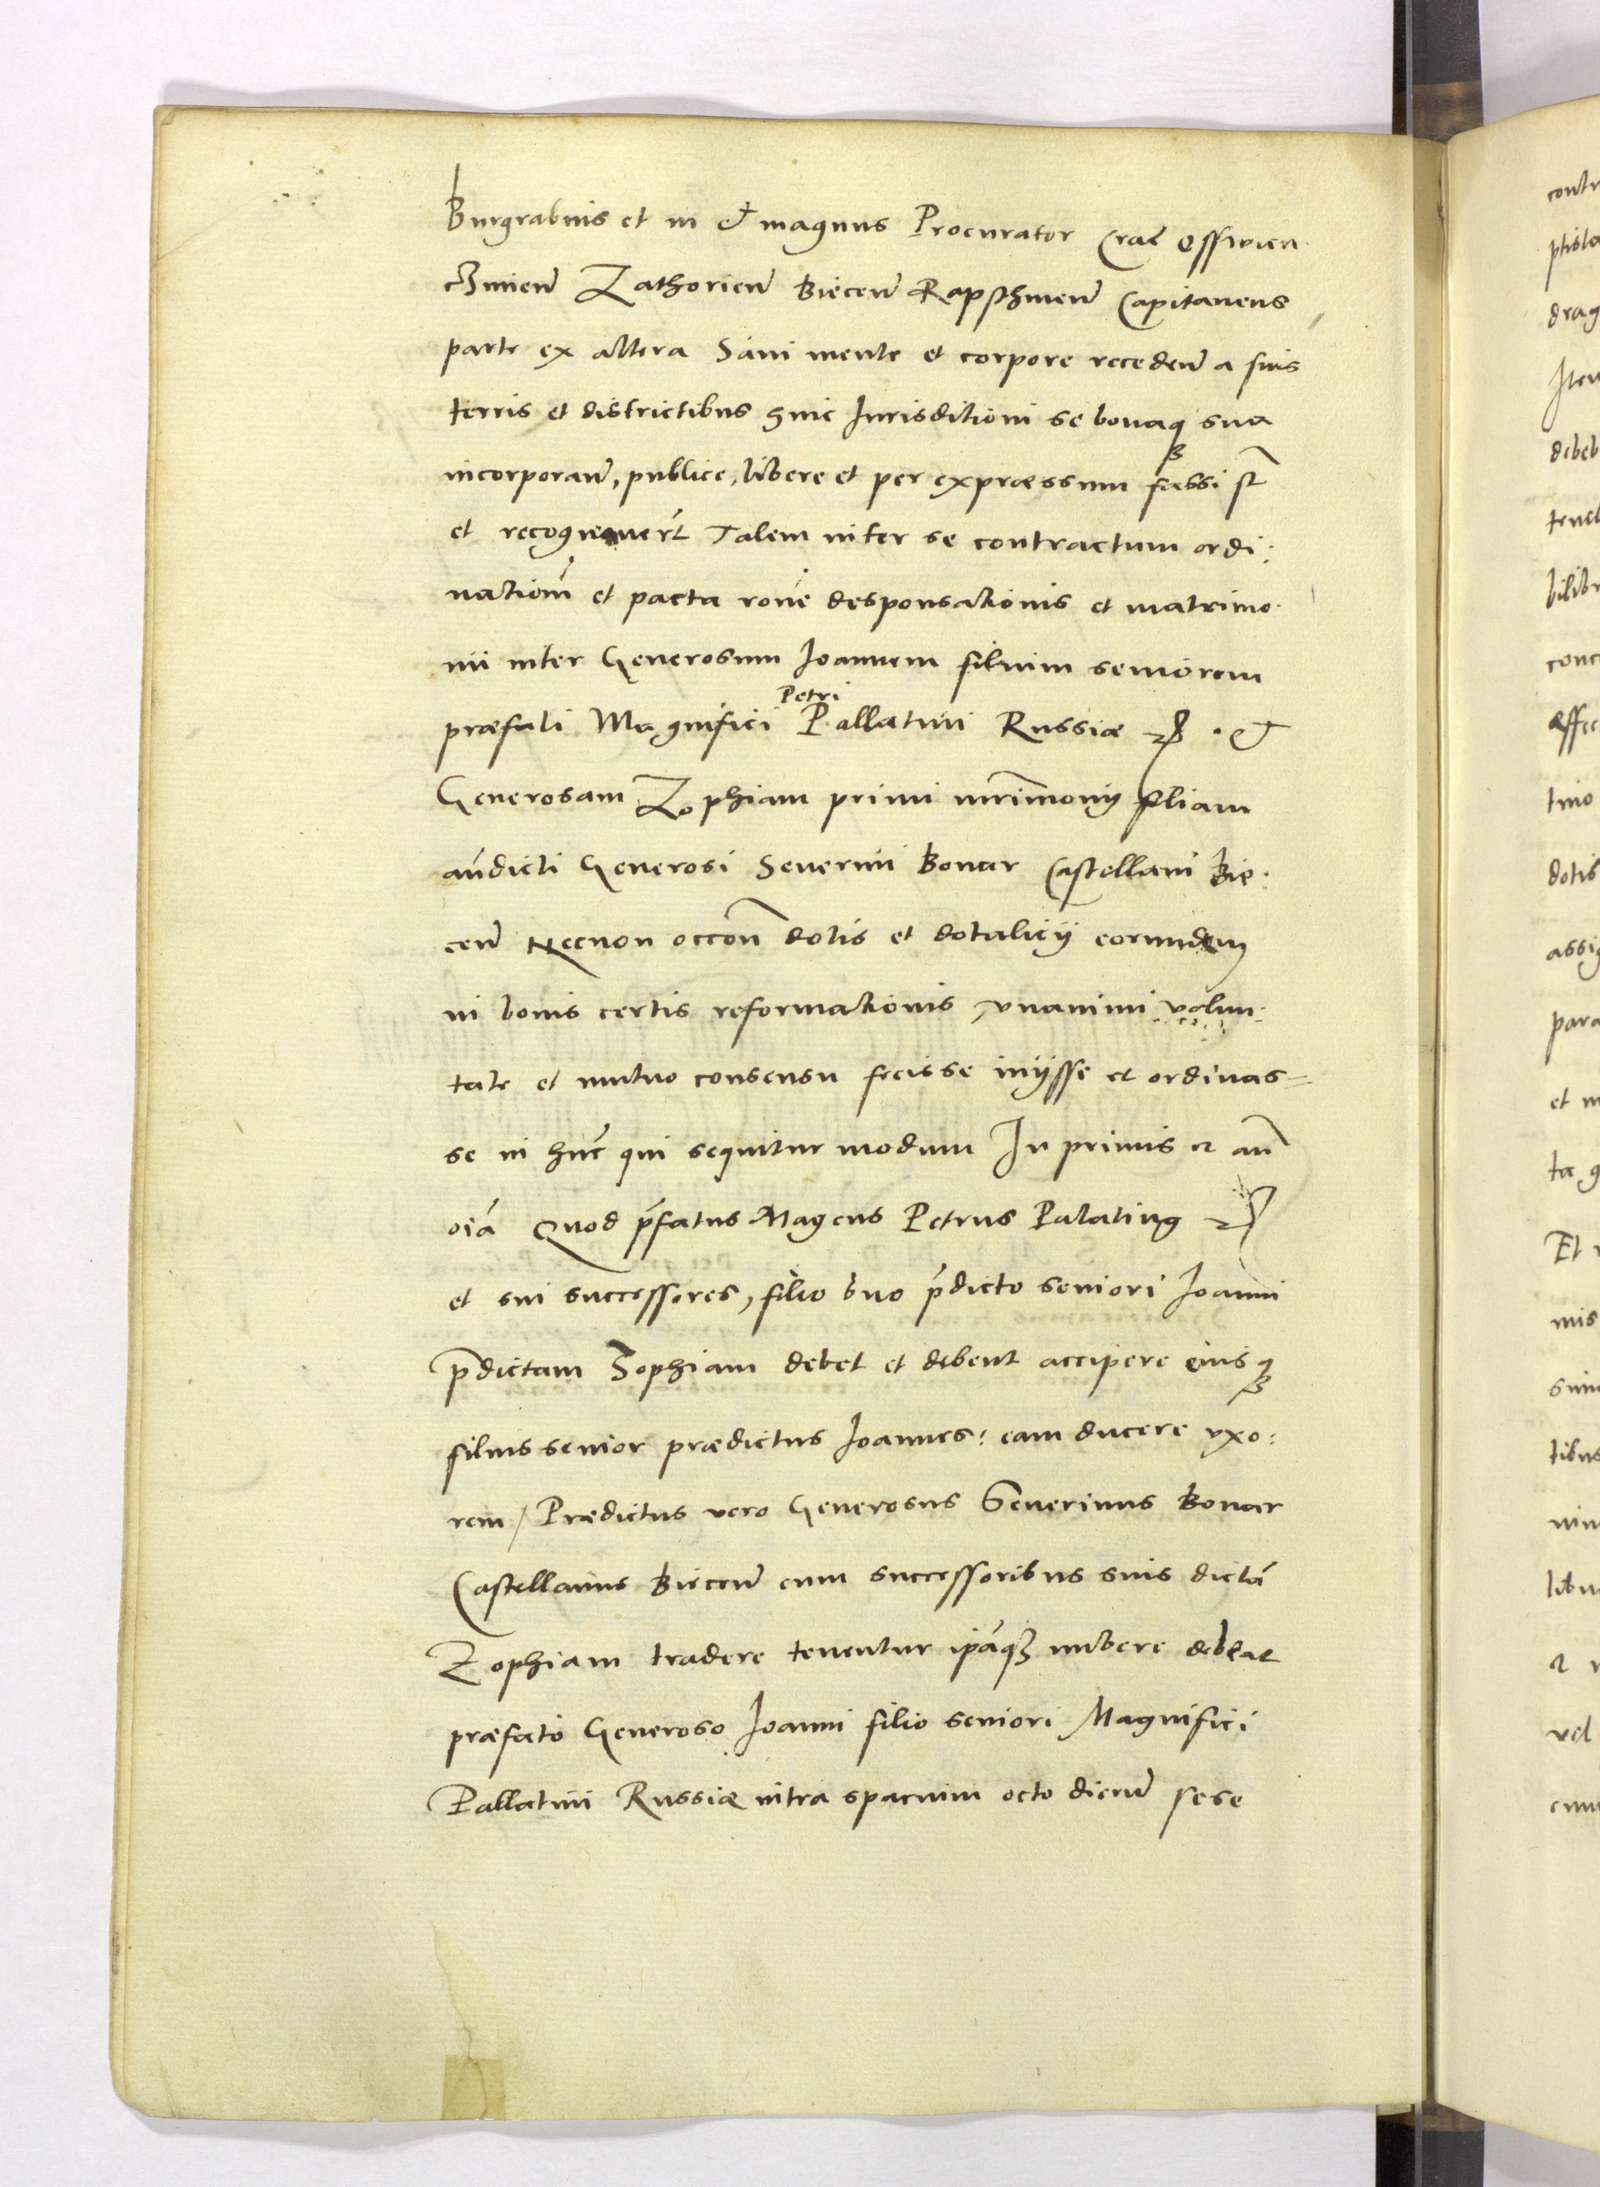 Burgrabius et in et magnus Procurator Crac Osswien
Zathorien Biecen Rapschinen Capitaneus
parte ex altera Sani mente et corpore receden a suis
terris et districtibus huic Jurisditioni se bonaq sua
incorporan, publice, libere et per expraessum fassi st
et recognouert Talem inter se contractum ordi:
nationem et pacta rone desponsationis et matrimo
nii inter Generosum Joannem filium seniorem
praefati Magnifici Petri Pallatini Russiae
Generosam Zophiam primi mrimonij filiam
andicti Generosi Severini Bonar Castellani Bie
cen Necnon occon dotis et dotalicij eorundem
in bonis certis reformationis, vnanimi volun
tate et mutuo consensu fecisse inijsse et ordinas=
se in hunc qui sequitur modum In primis et an
oia Quod pfatus Magcus Petrus Palatinus
et sui successores, filio suo pdicto seniori Joanni
pdictam Sophiam debet et debent accipere eiusq
filius senior praedictus Joannes: eam ducere vxo:
rem / Praedictus vero Generosus Severinus Bonar
Castellanus Biecen cum successoribus suis dictam
Zophiam tradere tenentur ipaq nubere debeat
praefato Generoso Joanni filio seniori Magnifici
Pallatini Russiae intra spacium octo dierum sese